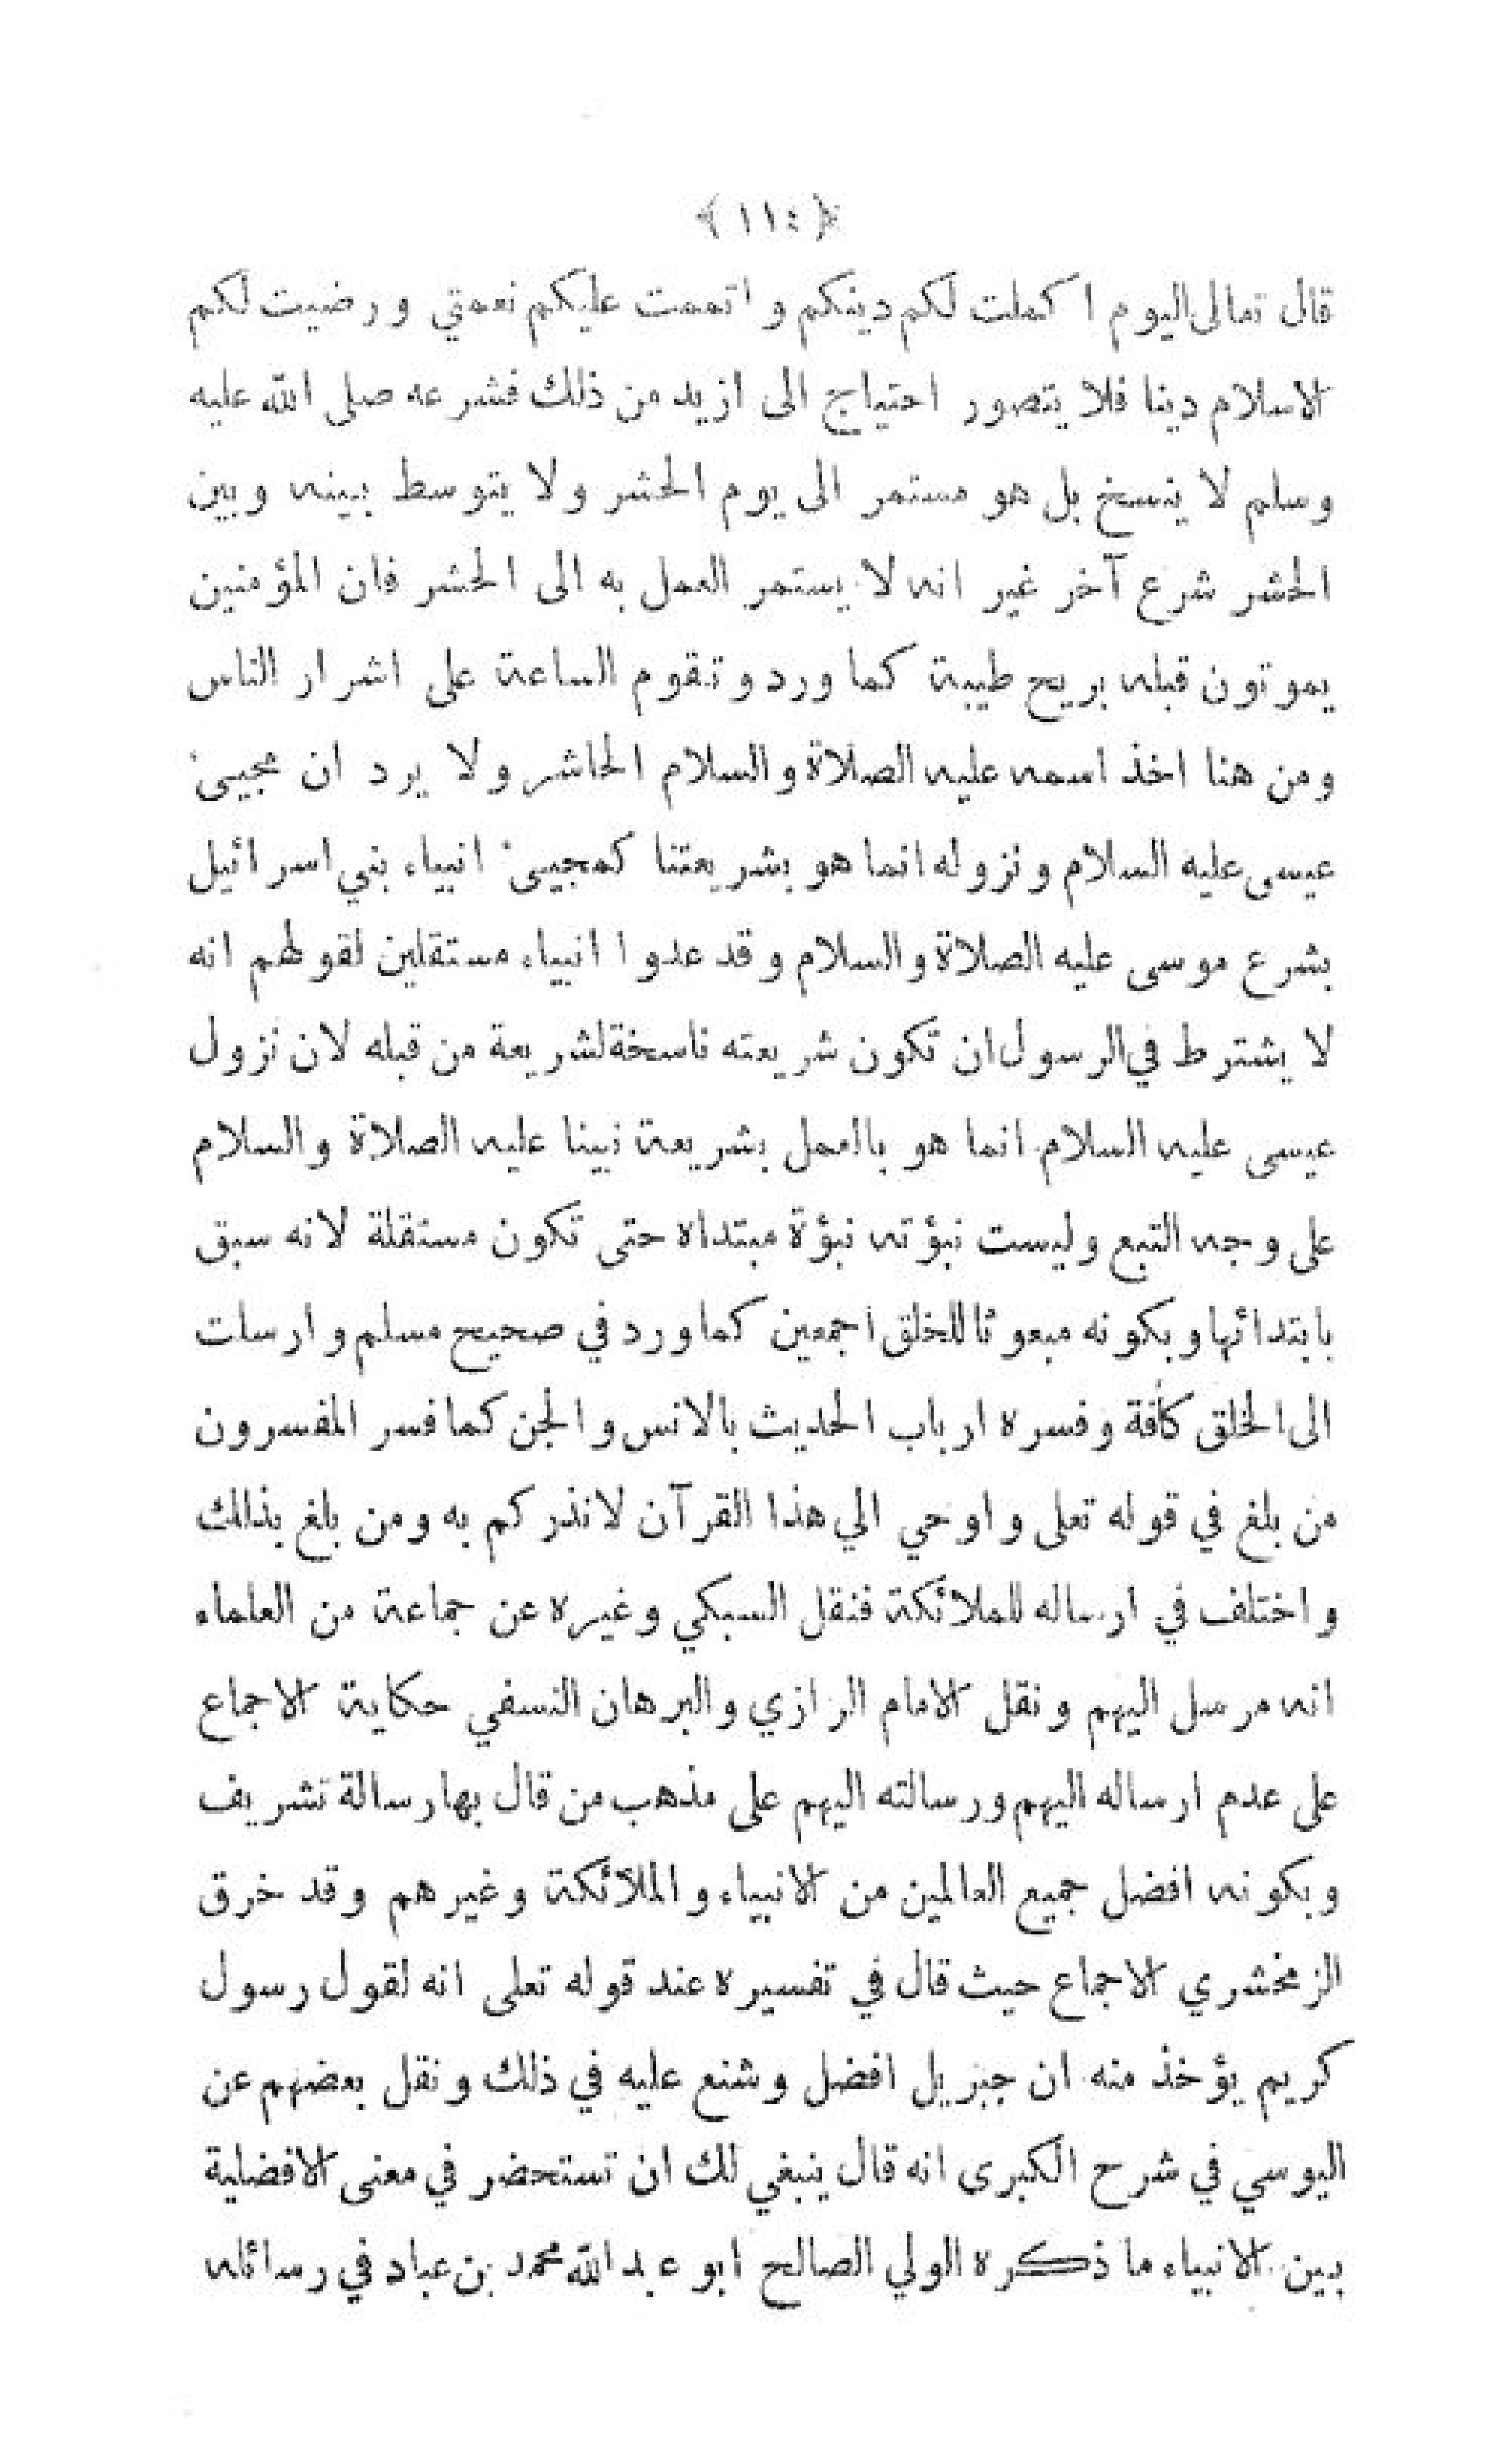 ﴿١١٤﴾
قال تعالى اليوم اكملت لكم دينكم واتممت عليكم نعمتي ورضيت لكم
الاسلام دينا فلا يتصور احتياج الى ازيد من ذلك فشرعه صلى الله عليه
وسلم لا ينسخ بل هو مستمر الى يوم الحشر ولا يتوسط بينه وبين
الحشر شرع آخر غير انه لا يستمر العمل به الى الحشر فان المؤمنين
يموتون قبله بريح طيبة كما ورد وتقوم الساعة على اشرار الناس
ومن هنا اخذ اسمه عليه الصلاة والسلام الحاشر ولا يرد ان مجيئ
عيسى عليه السلام ونزوله انما هو بشريعتنا كمجيئ انبياء بني اسرائيل
بشرع موسى عليه الصلاة والسلام وقد عدوا انبياء مستقلين لقولهم انه
لا يشترط في الرسول ان تكون شريعته ناسخة لشريعة من قبله لان نزول
عيسى عليه السلام انما هو بالعمل بشريعة نبينا عليه الصلاة والسلام
على وجه التبع وليست نبؤته نبؤة مبتداه حتى تكون مستقلة لانه سبق
بابتدائها وبكونه مبعوثا للخلق اجمعين كما ورد في صحيح مسلم وارسلت
الى الخلق كافة وفسره ارباب الحديث بالانس والجن كما فسر المفسرون
من بلغ في قوله تعلى واوحي الي هذا القرآن لانذركم به ومن بلغ بذلك
واختلف في ارساله للملائكة فنقل السبكي وغيره عن جماعة من العلماء
انه مرسل اليهم ونقل الامام الرازي والبرهان النسفي حكاية الاجماع
على عدم ارساله اليهم ورسالته اليهم على مذهب من قال بها رسالة تشريف
وبكونه افضل جميع العالمين من الانبياء والملائكة وغيرهم وقد خرق
الزمخشري الاجماع حيث قال في تفسيره عند قوله تعلى انه لقول رسول
كريم يؤخذ منه ان جبريل افضل وشنع عليه في ذلك ونقل بعضهم عن
اليوسي في شرح الكبرى انه قال ينبغي لك ان تستحضر في معنى الافضلية
بين الانبياء ما ذكره الولي الصالح ابو عبد الله محمد بن عباد في رسائله